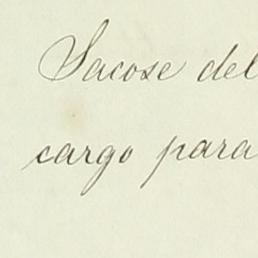 Sacose del
cargo para